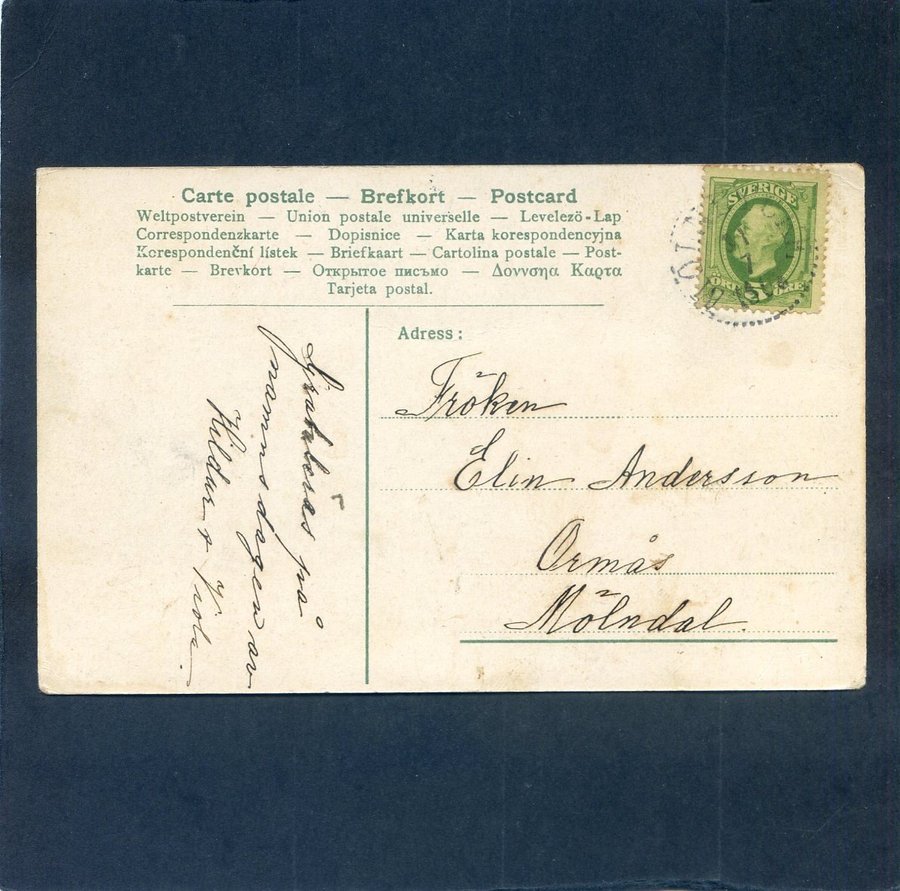 Carte postale — Brefkort — Postcard
Weltpostverein — Union postale universelle — Levelezö-Lap
Correspondenzkarte — Dopisnice — Karta korespondencyjna
Korespondenční lístek — Briefkaart — Cartolina postale — Post-
karte — Brevkort — Открытое письмо — Δοννσηα Καρτα
Tarjeta postal.
SVERIGE
Adress:
Fröken
Elin Andersson
Ormås
Mölndal.
Gratuleras på
namnsdagen av
Hildur + Viola.